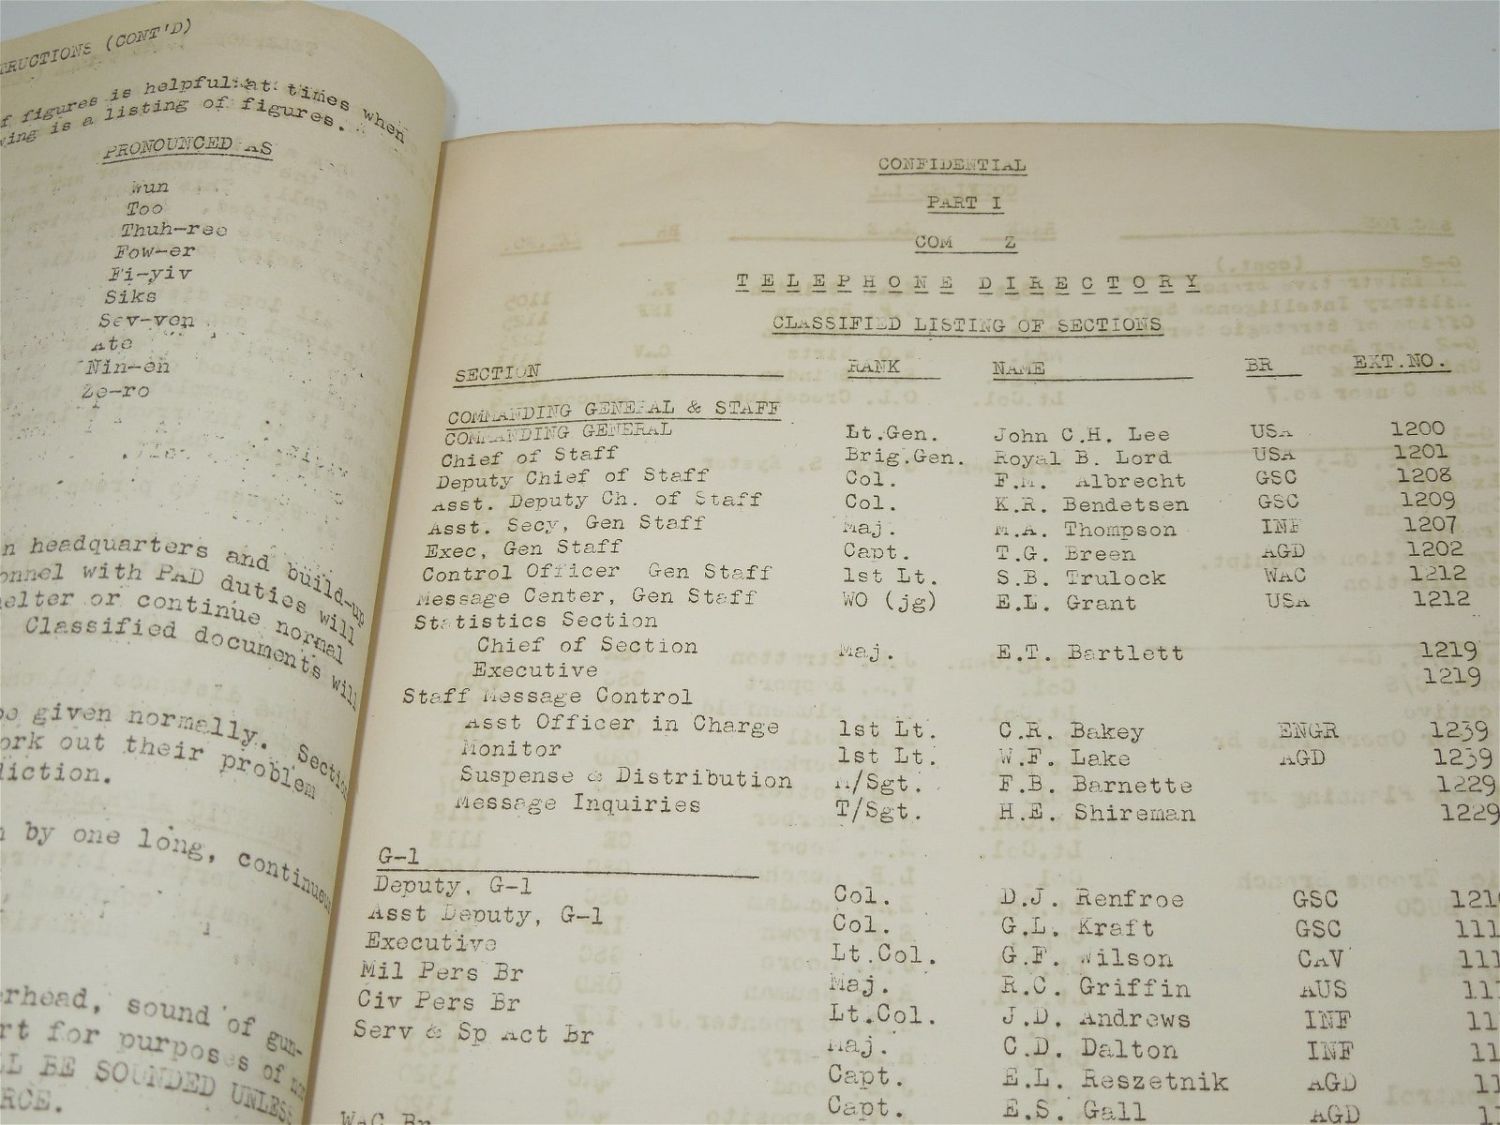 TRUCTIONS (CONT'D)
f figures is helpful at times when
wing is a listing of figures.
PRONOUNCED AS
Wun
Too
Thuh-ree
Fow-er
Fi-yiv
Siks
Sev-ven
Ate
Nin-en
Ze-ro
n headquarters and build-up
onnel with PAD duties will
elter or continue normal
Classified documents will
be given normally. Section
ork out their problem
diction.
n by one long, continueu
erhead, sound of gun-
rt for purposes of
LL BE SOUNDED UNLESS
RCE.
CONFIDENTIAL
PART I
COM Z
TELEPHONE DIRECTORY
CLASSIFIED LISTING OF SECTIONS
SECTION RANK NAME BR EXT.NO.
COMMANDING GENERAL & STAFF
COMMANDING GENERAL Lt.Gen. John C.H. Lee USA 1200
Chief of Staff Brig.Gen. Royal B. Lord USA 1201
Deputy Chief of Staff Col. F.M. Albrecht GSC 1208
Asst. Deputy Ch. of Staff Col. K.R. Bendetsen GSC 1209
Asst. Secy, Gen Staff Maj. M.A. Thompson INF 1207
Exec, Gen Staff Capt. T.G. Breen AGD 1202
Control Officer Gen Staff 1st Lt. S.B. Trulock WAC 1212
Message Center, Gen Staff WO (jg) E.L. Grant USA 1212
Statistics Section
Chief of Section Maj. E.T. Bartlett 1219
Executive 1219
Staff Message Control
Asst Officer in Charge 1st Lt. C.R. Bakey ENGR 1239
Monitor 1st Lt. W.F. Lake AGD 1239
Suspense & Distribution M/Sgt. F.B. Barnette 1229
Message Inquiries T/Sgt. H.E. Shireman 1229
G-1
Deputy, G-1 Col. D.J. Renfroe GSC 121
Asst Deputy, G-1 Col. G.L. Kraft GSC 111
Executive Lt.Col. G.F. Wilson CAV 111
Mil Pers Br Maj. R.C. Griffin AUS 11
Civ Pers Br Lt.Col. J.D. Andrews INF 11
Serv & Sp Act Br Maj. C.D. Dalton INF 11
Capt. E.L. Reszetnik AGD 11
WAC Br Capt. E.S. Gall AGD 1